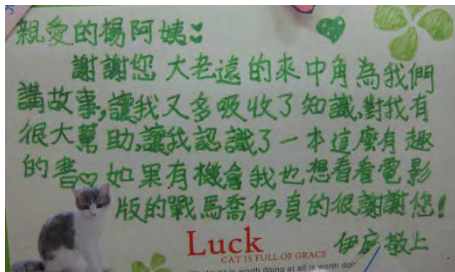 親愛的楊阿姨:
謝謝您 大老遠的來中角為我們
講故事,讓我又多吸收了知識,對我有
很大幫助,讓我認識了一本這麼有趣
的書♡如果有機會我也想看看電影
版的戰馬喬伊,真的很謝謝您!
Luck
CAT IS FULL OF GRACE
伊 敬上
worth doing at all is worth doin